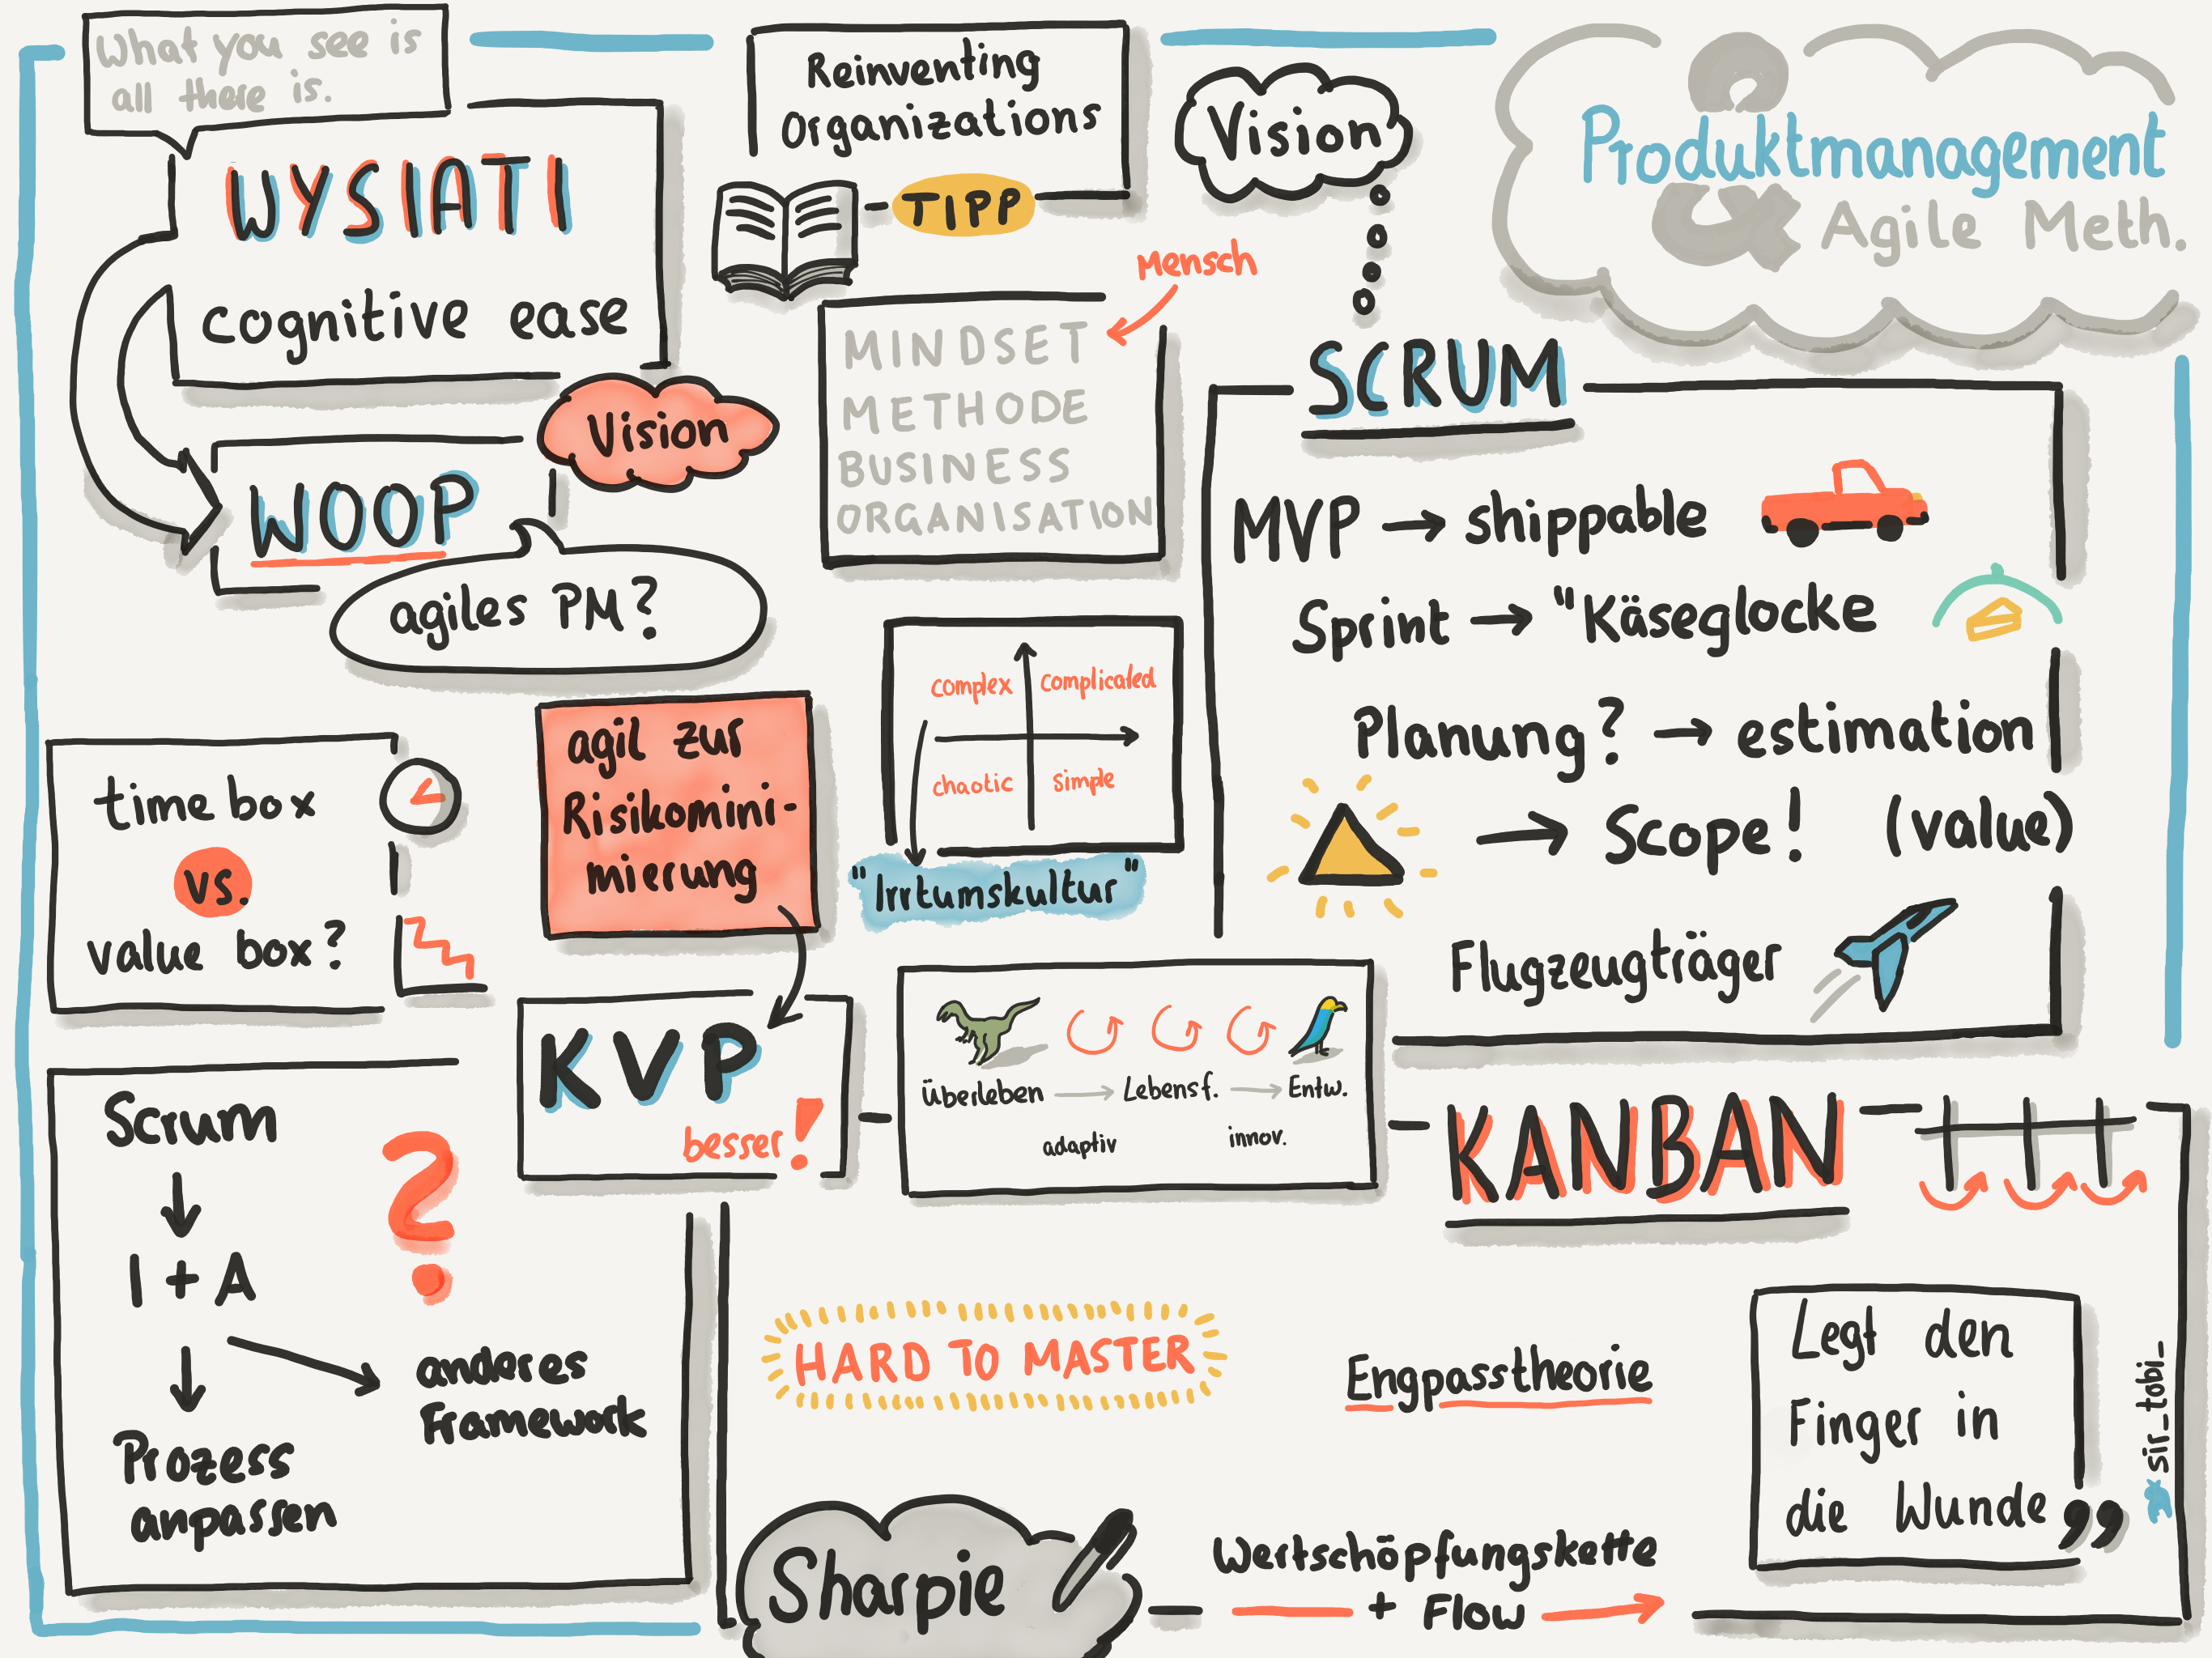 What you see is
all there is.
WYSIATI
cognitive ease
WOOP
Vision
agiles PM?
Reinventing
Organizations
TIPP
Mensch
MINDSET
METHODE
BUSINESS
ORGANISATION
Vision
Produktmanagement
& Agile Meth.
SCRUM
MVP → shippable
Sprint → "Käseglocke
Planung? → estimation
→ Scope! (value)
Flugzeugträger
complex
complicated
chaotic
simple
"Irrtumskultur"
time box
vs.
value box?
agil zur
Risikomini-
mierung
KVP
besser!
Überleben → Lebensf. → Entw.
adaptiv
innov.
Scrum
↓
I + A
?
↓
anderes
Framework
Prozess
anpassen
KANBAN
HARD TO MASTER
Engpasstheorie
Legt den
Finger in
die Wunde ”
sir_tobi_
Sharpie
Wertschöpfungskette
+ Flow →